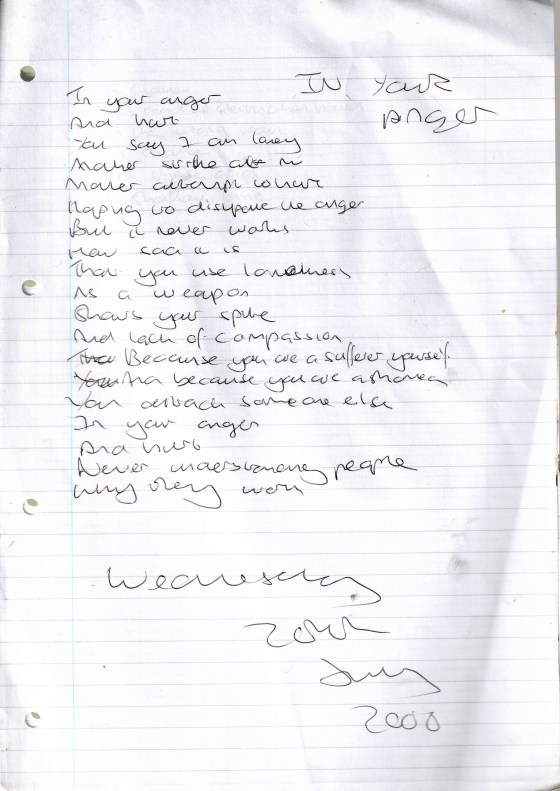 IN Your
Anger
In your anger
And hurt
You say I am lonely
Another strike at me
Another attempt to hurt
Hoping to dissipate the anger
But it never works
How sad it is
That you use loneliness
As a weapon
Shows your spite
And lack of compassion
Because you are a sufferer yourself.
And because you are ashamed
You attack someone else
In your anger
And hurt
Never understanding people
Why they work
Wednesday
20th
July
2000